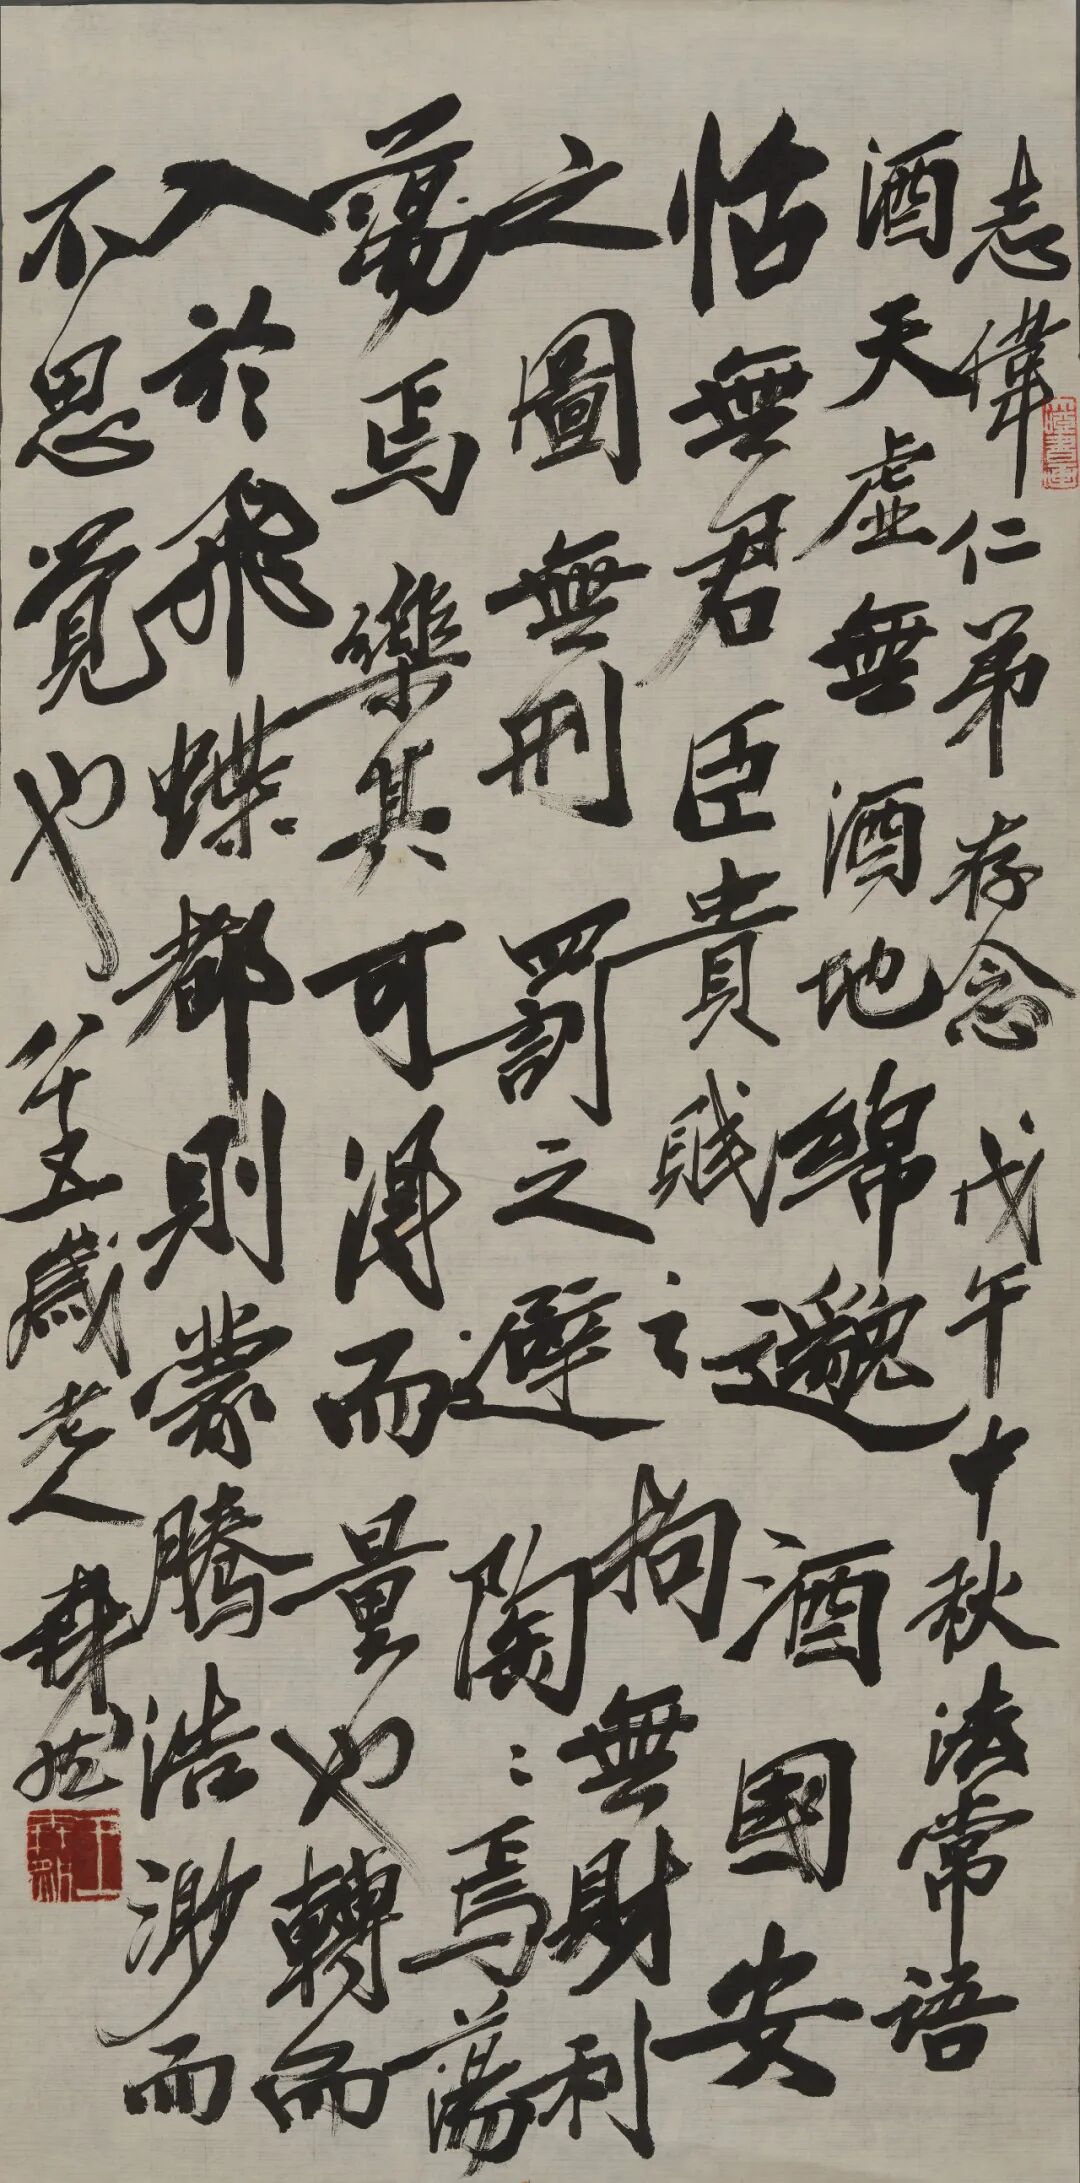 志偉仁弟存念 戊午中秋 法常語
酒天虛無酒地綿邈酒國安
恬無君臣貴賤之拘無財利
之圖無刑罰之避陶〻焉蕩
蕩焉樂其可得而量也轉而
入於飛蝶都則蒙騰浩渺而
不思覺也 八十五歲老人 森然